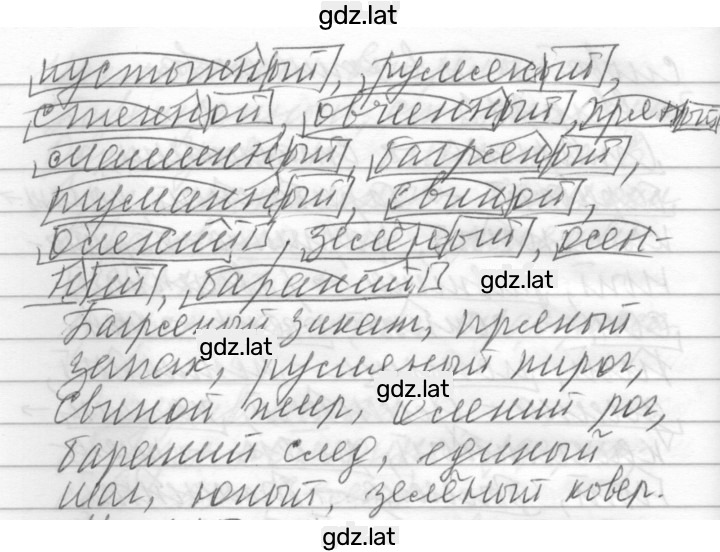 gdz.lat
пустынный, румяный,
стенной, овчинный, пряный
машинный, багряный,
туманный, свиной,
олений, зелёный, осен-
ний, бараний
gdz.lat
Багряный закат, пряный
gdz.lat
запах, румяный пирог,
gdz.lat
свиной жир, олений рог,
бараний след, единый
шаг, юный, зелёный ковер.
gdz.lat